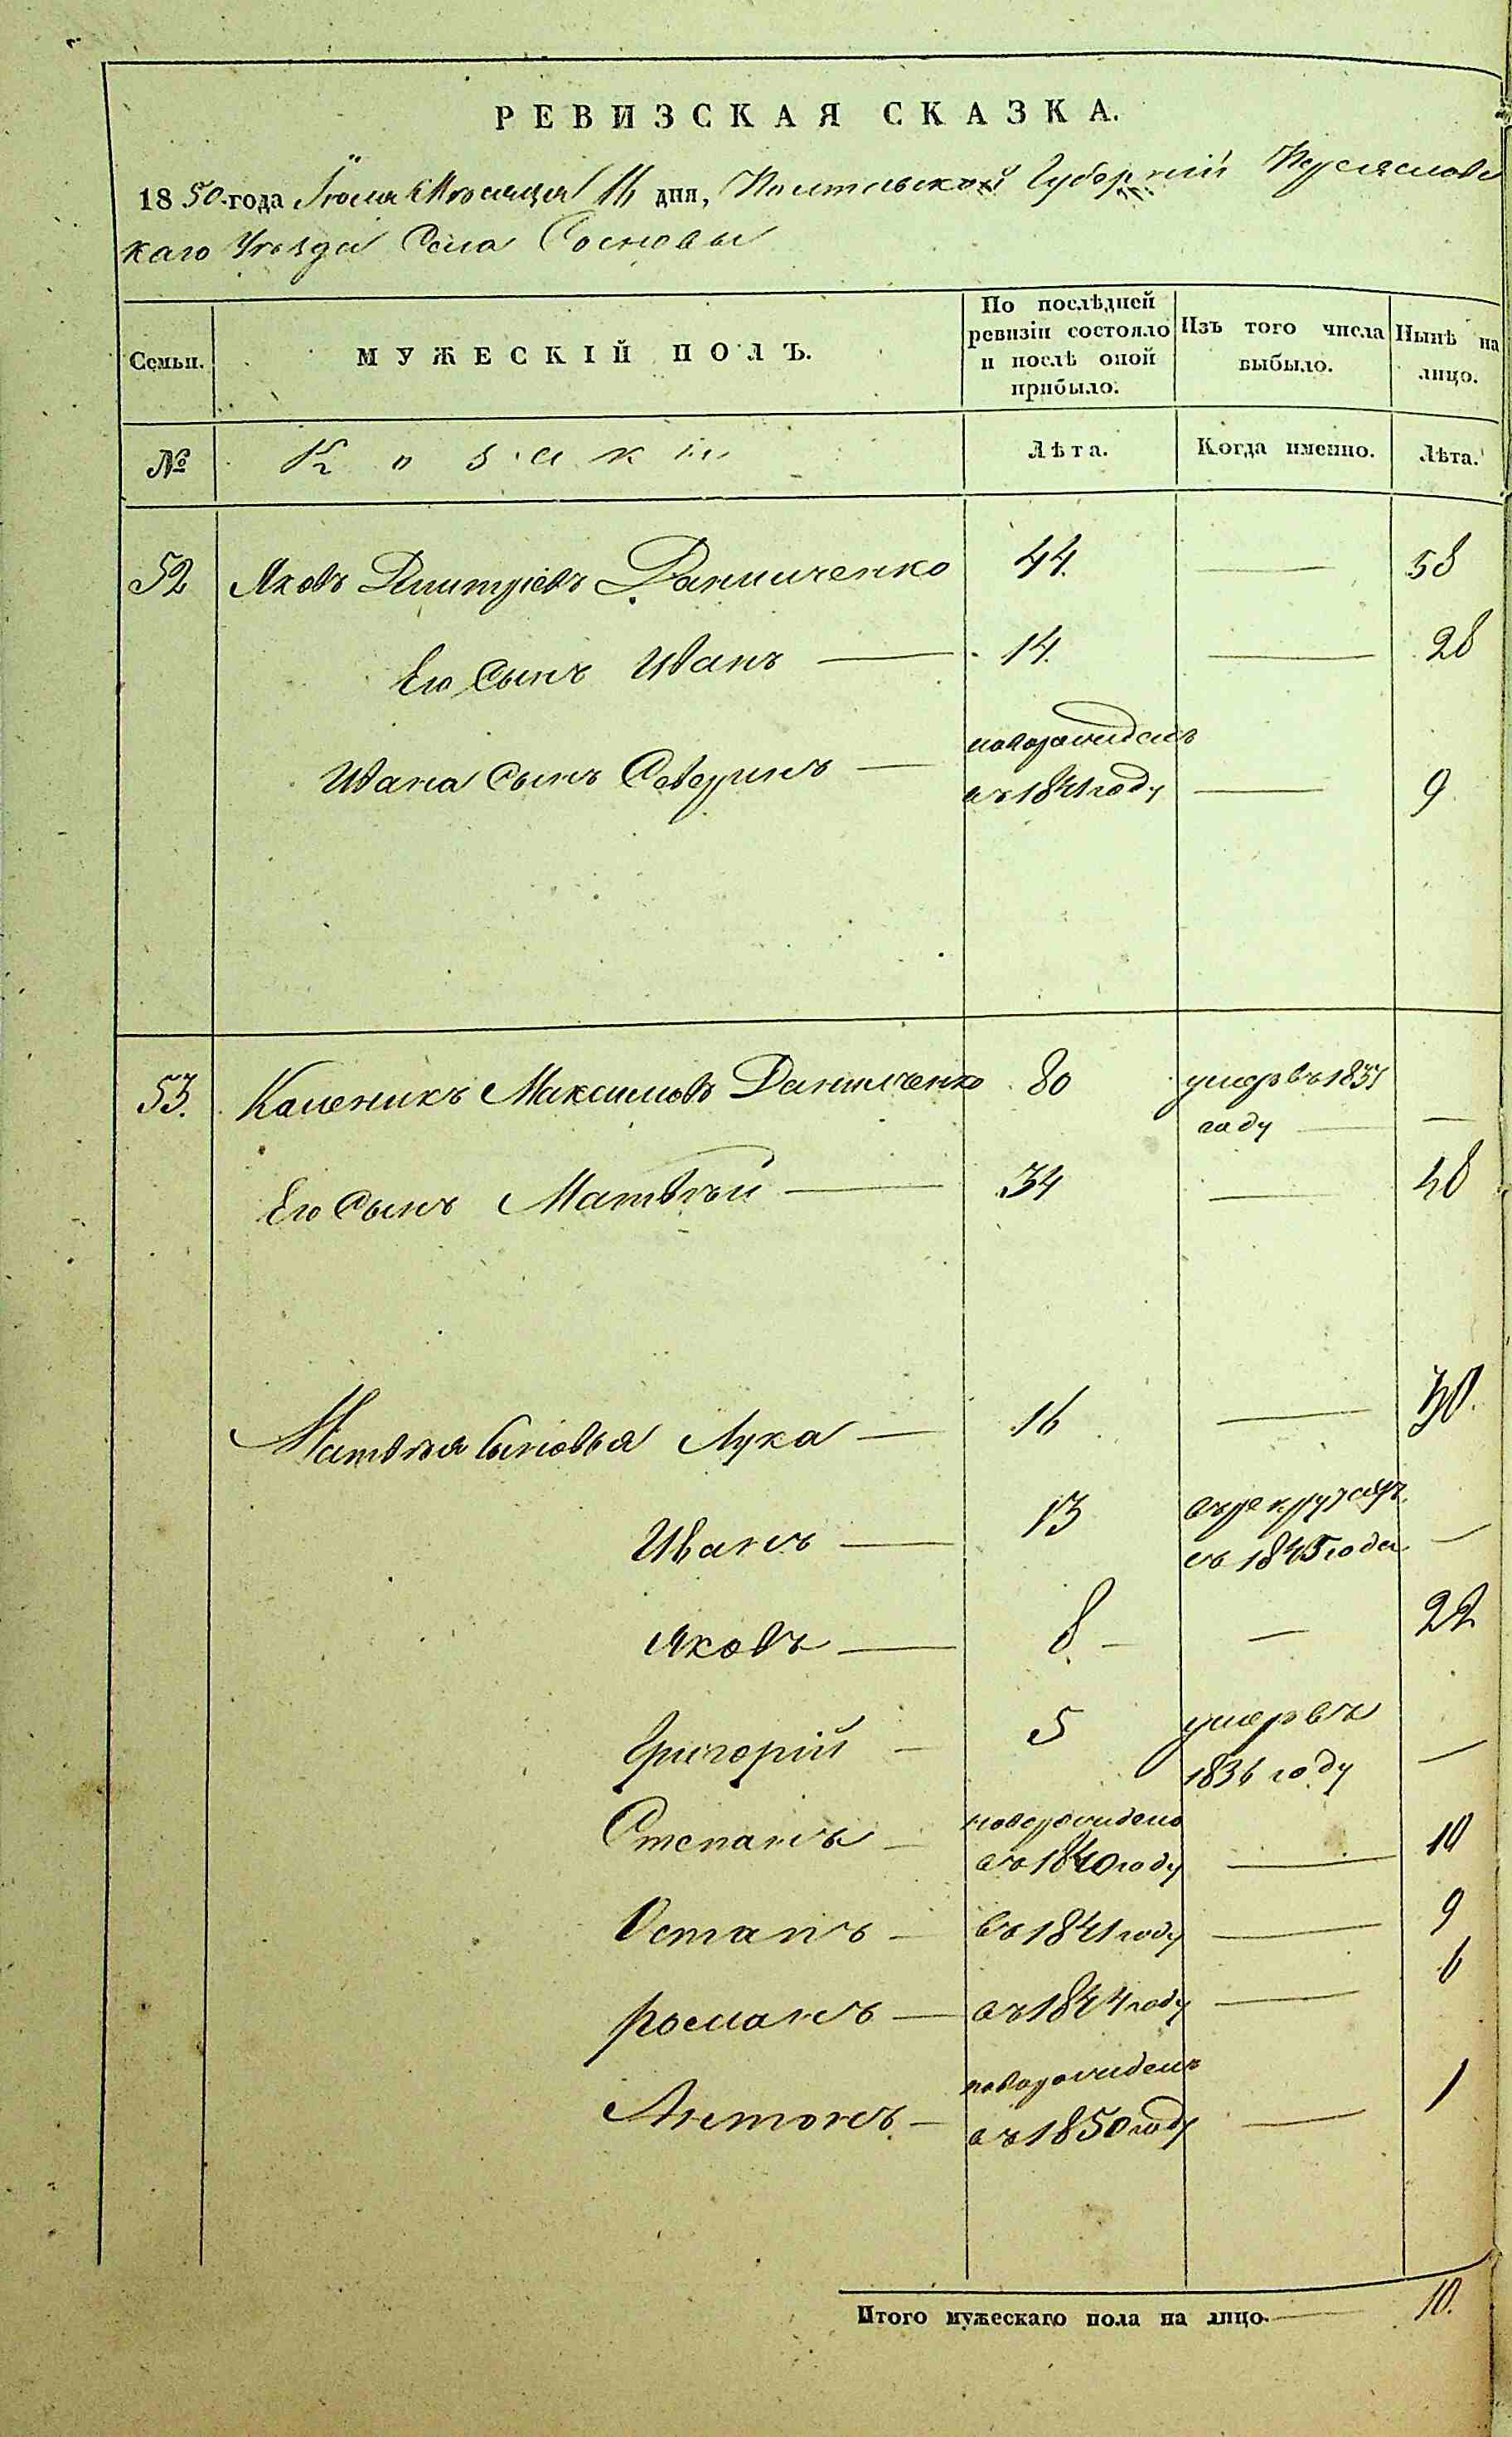 РЕВИЗСКАЯ СКАЗКА.
1850 года Іюля Мѣсяца 16 дня, Полтавской Губерніи Переяславс
каго Уѣзда Села Сосновы
Семьи.
МУЖЕСКІЙ ПОЛЪ.
По послѣдней ревизіи состояло и послѣ оной прибыло.
Изъ того числа выбыло.
Нынѣ на лицо.
№ Козаки Лѣта. Когда именно. Лѣта.
52 Яковъ Дмитріевъ Данильченко 44. — 58
Его Сынъ Иванъ — 14. — 28
Ивана Сынъ Северинъ — новорожденъ
въ 1841 году — 9
53. Каленикъ Максимовъ Данильченко 80 умеръ въ 1837
году — —
Его Сынъ Матвѣй — 34 — 48
Матвѣя Сыновья Лука — 16 — 30.
Иванъ — 13 въ рекрутахъ
съ 1845 года —
Яковъ — 8 — — 22
Григорій — 5 умеръ въ
1836 году —
Степанъ — новорожденъ
въ 1840 году — 10
Остапъ — въ 1841 году — 9
романъ — въ 1844 году — 6
Антонъ — новорожденъ
въ 1850 году — 1
Итого мужескаго пола на лицо. — 10.